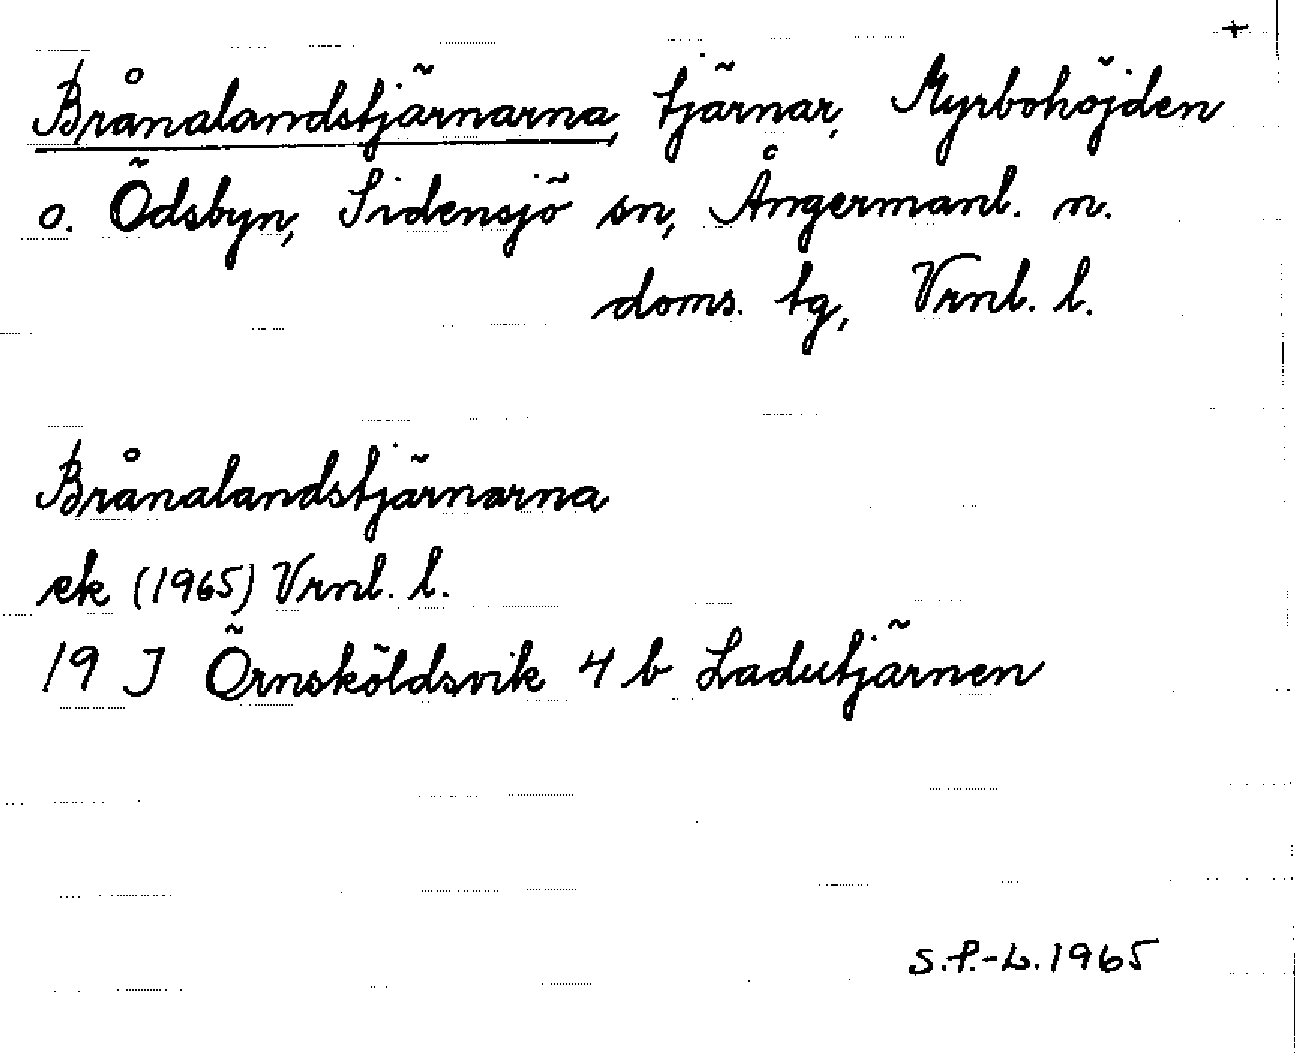 +
Brånalandstjärnarna, tjärnar, Myrbohöjden
o. Ödsbyn, Sidensjö sn, Ångermanl. n.
doms. tg, Vrnl. l.
Brånalandstjärnarna
ek (1965) Vrnl. l.
19 J Örnsköldsvik 4 b Ladutjärnen
S.P.-L. 1965